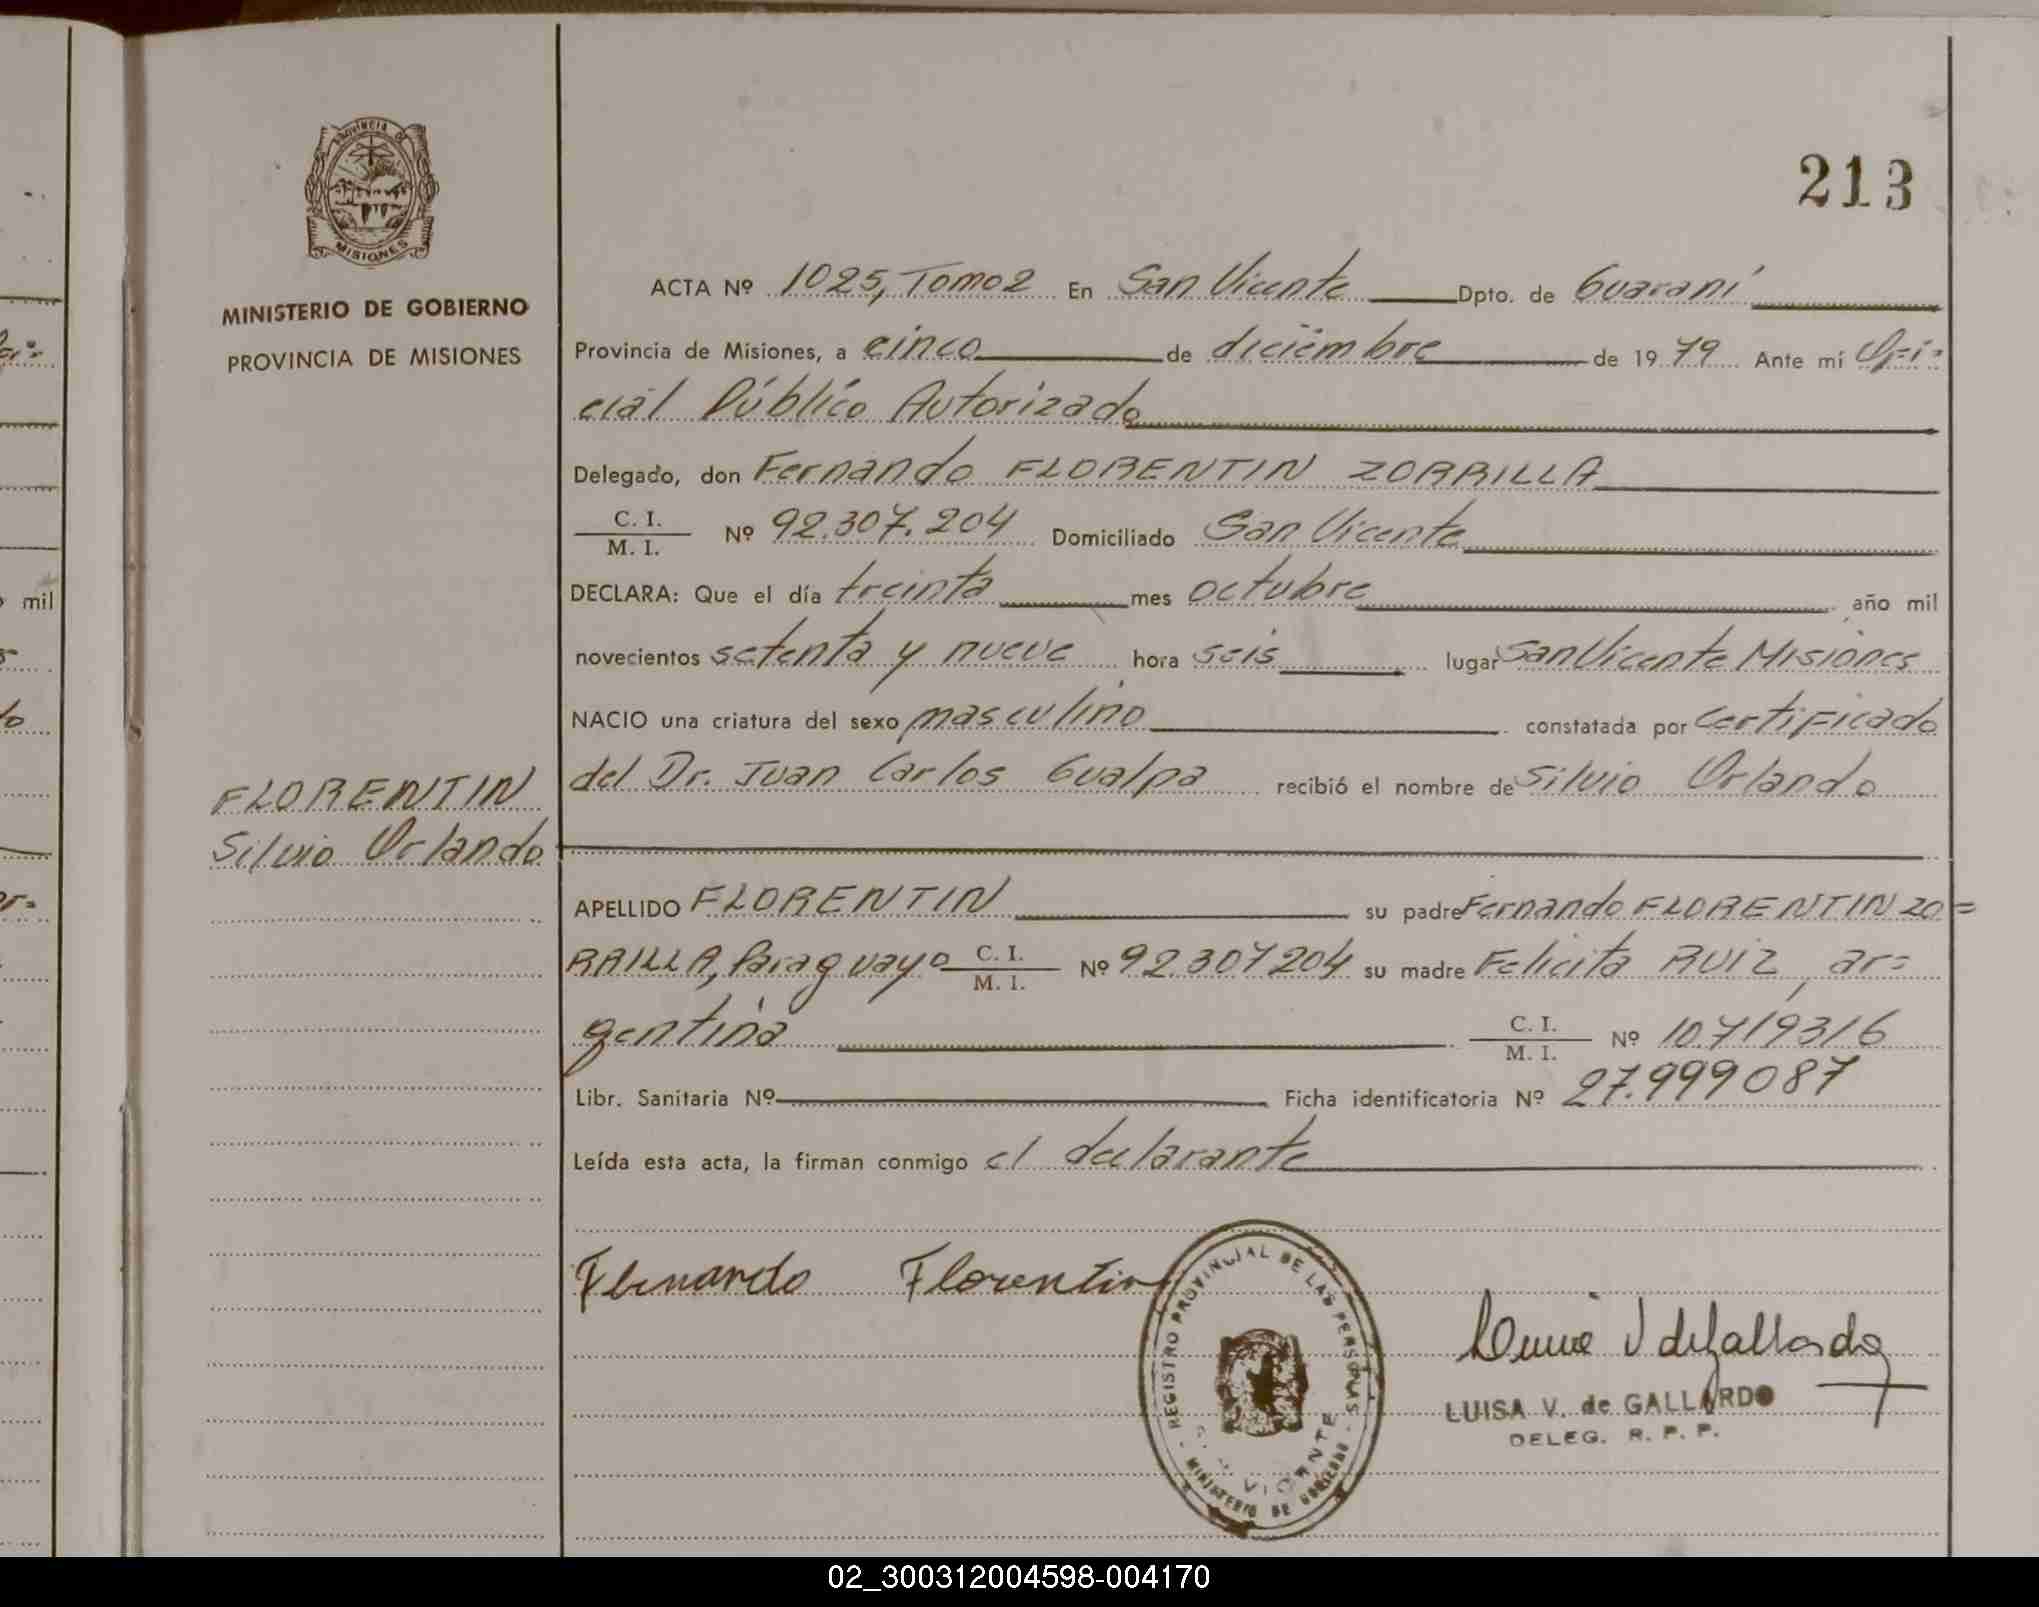 213
PROVINCIA DE
MISIONES
MINISTERIO DE GOBIERNO
PROVINCIA DE MISIONES
ACTA Nº 1025, Tomo 2 En San Vicente Dpto. de Guaraní
Provincia de Misiones, a cinco de diciembre de 1979 Ante mí Ofi=
cial Público Autorizado
Delegado, don Fernando FLORENTIN ZORRILLA
C. I.
M. I. Nº 92.307.204 Domiciliado San Vicente
DECLARA: Que el día treinta mes octubre año mil
novecientos setenta y nueve hora seis lugar San Vicente Misiones
NACIO una criatura del sexo masculino constatada por Certificado
del Dr. Juan Carlos Gualpa recibió el nombre de Silvio Orlando
FLORENTIN
Silvio Orlando
APELLIDO FLORENTIN su padre Fernando FLORENTIN ZO=
RRILLA, Paraguayo C. I.
M. I. Nº 92.307204 su madre Felicita RUIZ, ar=
gentina C. I.
M. I. Nº 10.719316
Libr. Sanitaria Nº Ficha identificatoria Nº 27.999087
Leída esta acta, la firman conmigo el declarante
Fernando Florentin
REGISTRO PROVINCIAL DE LAS PERSONAS
VICENTE
MINISTERIO DE GOBIERNO
LUISA V. de GALLARDO
DELEG. R. P. P.
mil
02_300312004598-004170